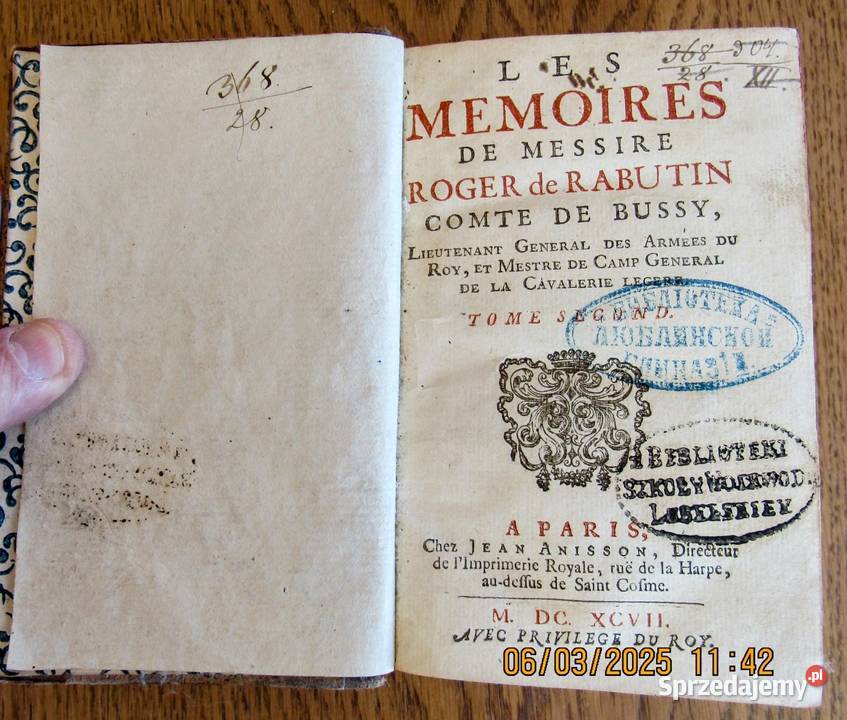 368
28.
368 304.
28. XII.
LES
MEMOIRES
DE MESSIRE
ROGER de RABUTIN
COMTE DE BUSSY,
LIEUTENANT GENERAL DES ARMÉES DU
ROY, ET MESTRE DE CAMP GENERAL
DE LA CAVALERIE LEGERE.
TOME SECOND.
БИБЛІОТЕКА
ЛЮБЛИНСКОЙ
ГИМНАЗІИ
BIBLIOTEKI
SZKOŁY WOJEWOD.
LUBELSKIEY
A PARIS,
Chez JEAN ANISSON, Directeur
de l'Imprimerie Royale, ruë de la Harpe,
au-dessus de Saint Cosme.
M. DC. XCVII.
AVEC PRIVILEGE DU ROY.
06/03/2025 11:42
Sprzedajemy.pl